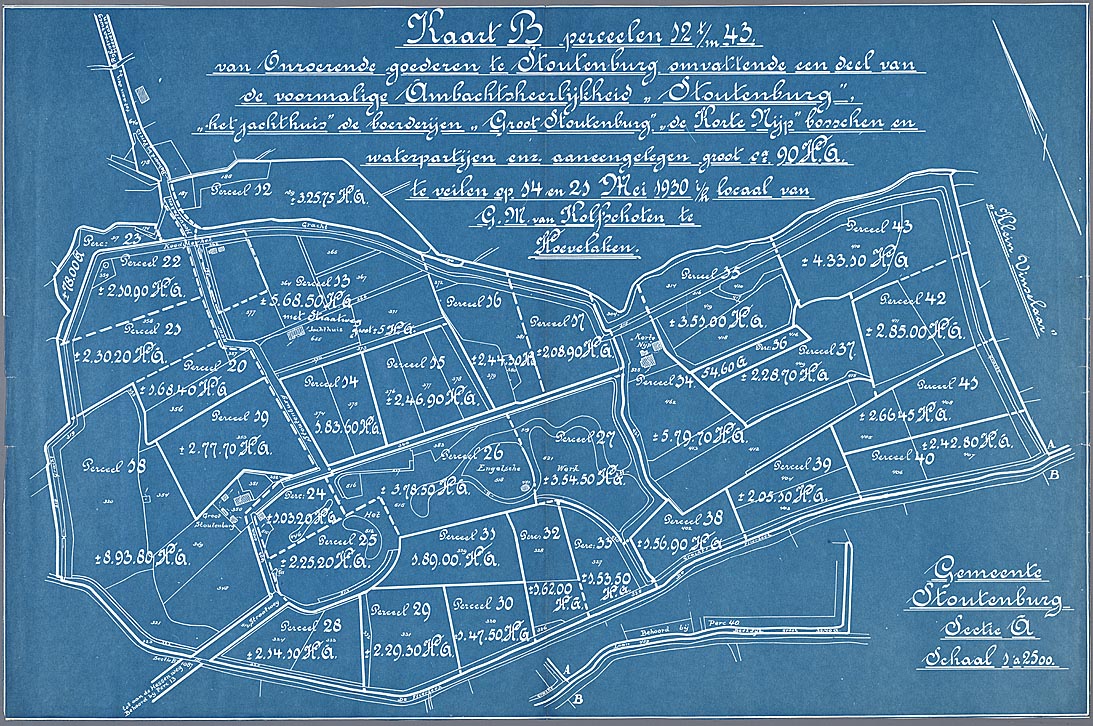 Kaart B perceelen 12 t/m 43.
van Onroerende goederen te Stoutenburg omvattende een deel van
de voormalige Ambachtsheerlijkheid „Stoutenburg”,
„het jachthuis” de boerderijen „Groot Stoutenburg” „de Korte Nijp” bosschen en
waterpartijen enz. aaneengelegen groot ca. 90 H.A.
te veilen op 14 en 21 Mei 1930 i/h locaal van
G.M. van Kolfschoten te
Hoevelaken.
Perceel 12
± 3.25.75 H.A.
Gracht
Perc: 23
± 78.00 A
Perceel 22
± 2.50.90 H.A.
Perceel 21
± 2.30.20 H.A.
Perceel 20
± 1.68.40 H.A.
Perceel 19
± 2.77.70 H.A.
Perceel 18
± 8.93.80 H.A.
Perceel 13
± 5.68.50 H.A.
met Straatweg
Jachthuis
Perceel 14
1.83.60 H.A.
Perceel 15
± 2.46.90 H.A.
Perceel 16
± 2.44.30 H.A.
Perceel 17
± 2.08.90 H.A.
Perceel 43
± 4.33.10 H.A.
Perceel 35
± 3.53.00 H.A.
Perc: 36
54.60 A
Perceel 37
± 2.28.70 H.A.
Perceel 42
± 2.85.00 H.A.
Perceel 41
± 2.66.45 H.A.
± 2.42.80 H.A.
Perceel 40
Perceel 39
± 2.05.10 H.A.
Perceel 38
± 1.56.90 H.A.
Korte
Nijp
Perceel 34
± 5.79.70 H.A.
Perceel 26
± 3.78.50 H.A.
Engelsche Werk
Perceel 27
± 3.54.50 H.A.
Perc: 24
± 1.03.20 H.A.
Het
Perceel 25
± 2.25.20 H.A.
Groot
Stoutenburg
Perceel 31
1.89.00 H.A.
Perc: 32
± 1.62.00
H.A.
Perc: 33
± 1.53.50
H.A.
Perceel 28
± 2.14.10 H.A.
Perceel 29
± 2.29.30 H.A.
Perceel 30
1.47.50 H.A.
Straatweg
„Klein Vinselaar”
A
B
Behoord bij Perc 40
A
B
Gemeente
Stoutenburg
Sectie A
Schaal 1 à 2500.